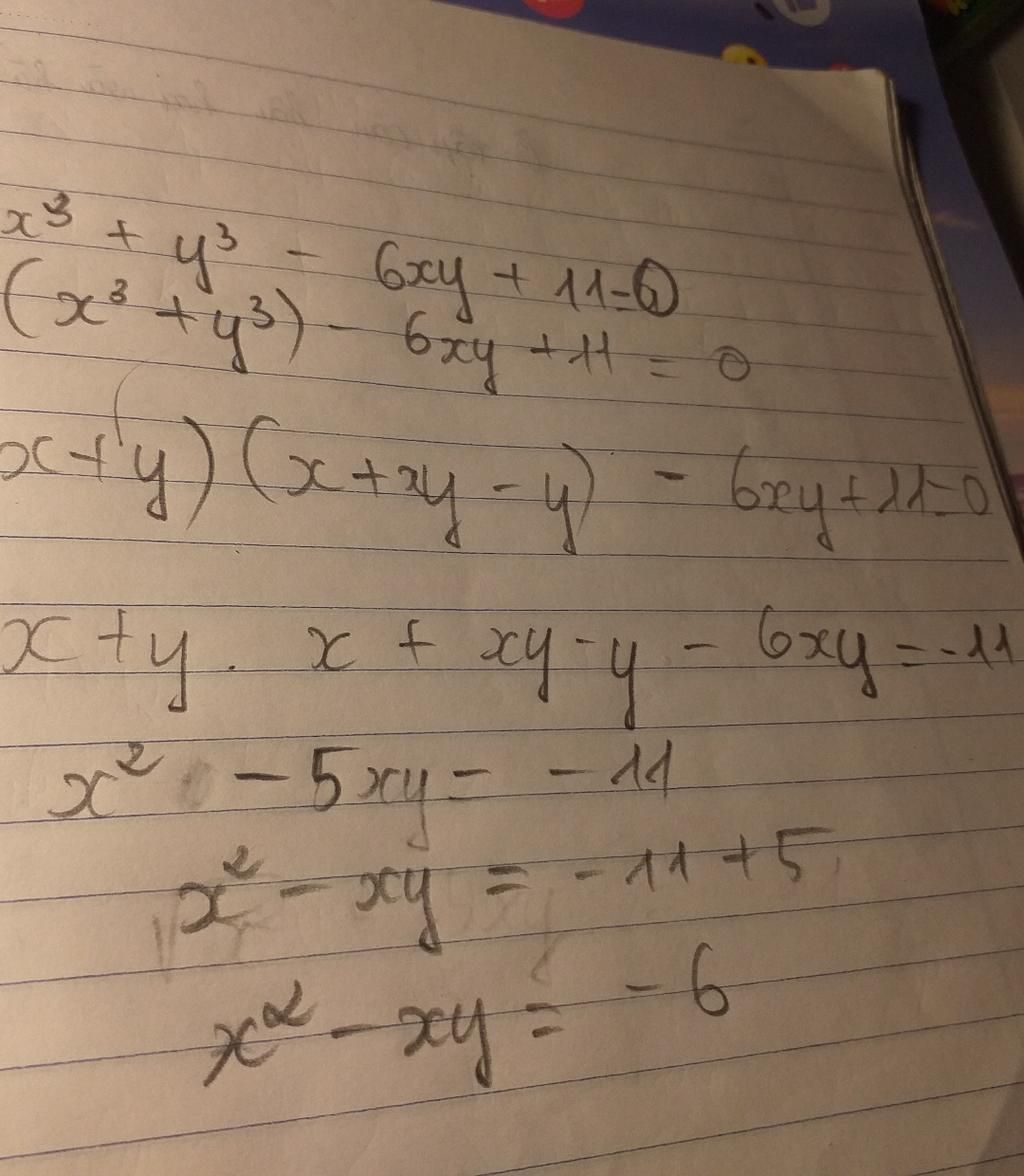 x³ + y³ - 6xy + 11=0
(x³ + y³) - 6xy + 11 = 0
x+y) (x + xy - y) - 6xy + 11=0
x + y . x + xy - y - 6xy = -11
x² - 5xy = -11
x² - xy = -11 + 5
x² - xy = -6